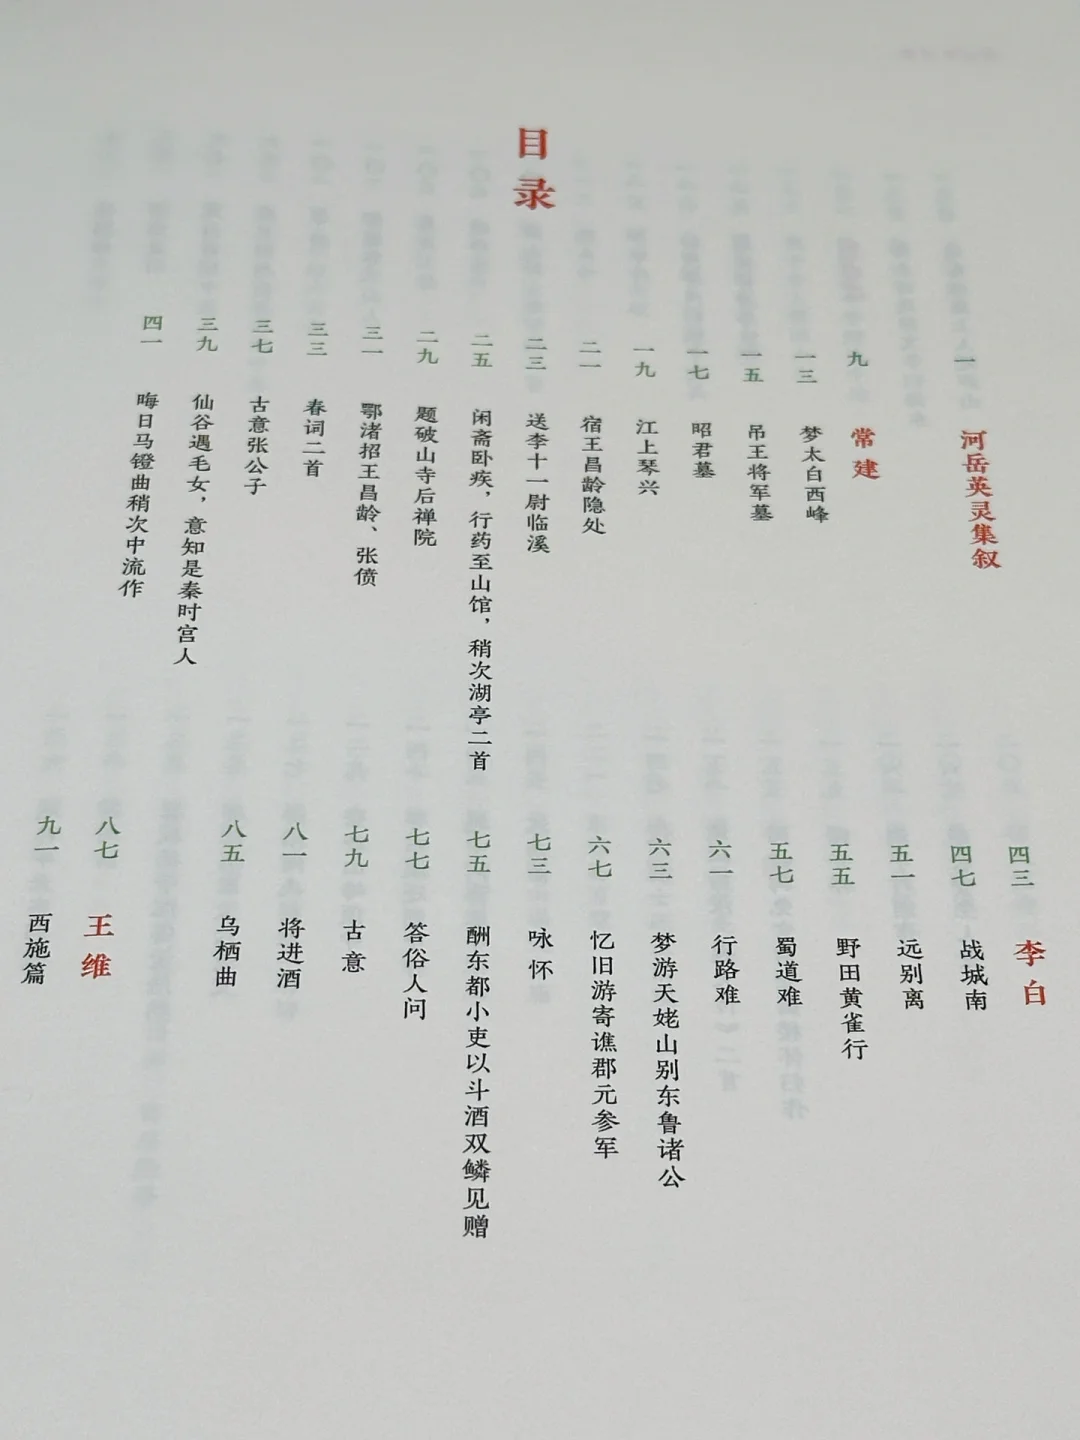 目录
一 河岳英灵集叙
九 常建
一三 梦太白西峰
一五 吊王将军墓
一七 昭君墓
一九 江上琴兴
二一 宿王昌龄隐处
二三 送李十一尉临溪
二五 闲斋卧疾，行药至山馆，稍次湖亭二首
二九 题破山寺后禅院
三一 鄂渚招王昌龄、张偾
三三 春词二首
三七 古意张公子
三九 仙谷遇毛女，意知是秦时宫人
四一 晦日马镫曲稍次中流作
四三 李白
四七 战城南
五一 远别离
五五 野田黄雀行
五七 蜀道难
六一 行路难
六三 梦游天姥山别东鲁诸公
六七 忆旧游寄谯郡元参军
七三 咏怀
七五 酬东都小吏以斗酒双鳞见赠
七七 答俗人问
七九 古意
八一 将进酒
八五 乌栖曲
八七 王维
九一 西施篇